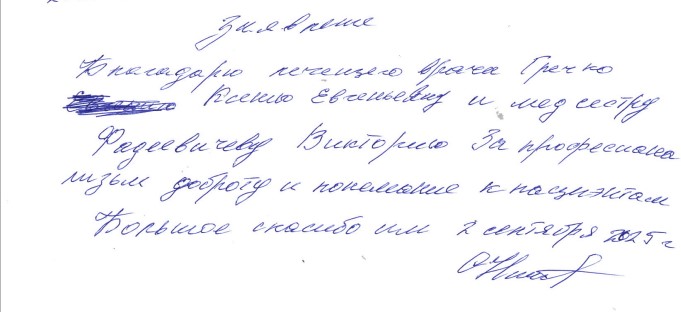 Заявление
Благадарю лечещего врача Гречко
Ксению Евгеньевну и мед сестру
Фадеевичеву Викторию За професиона
лизьм доброту и понемание к пациэнтам
Большое спасибо им 2 сентября 2025 г